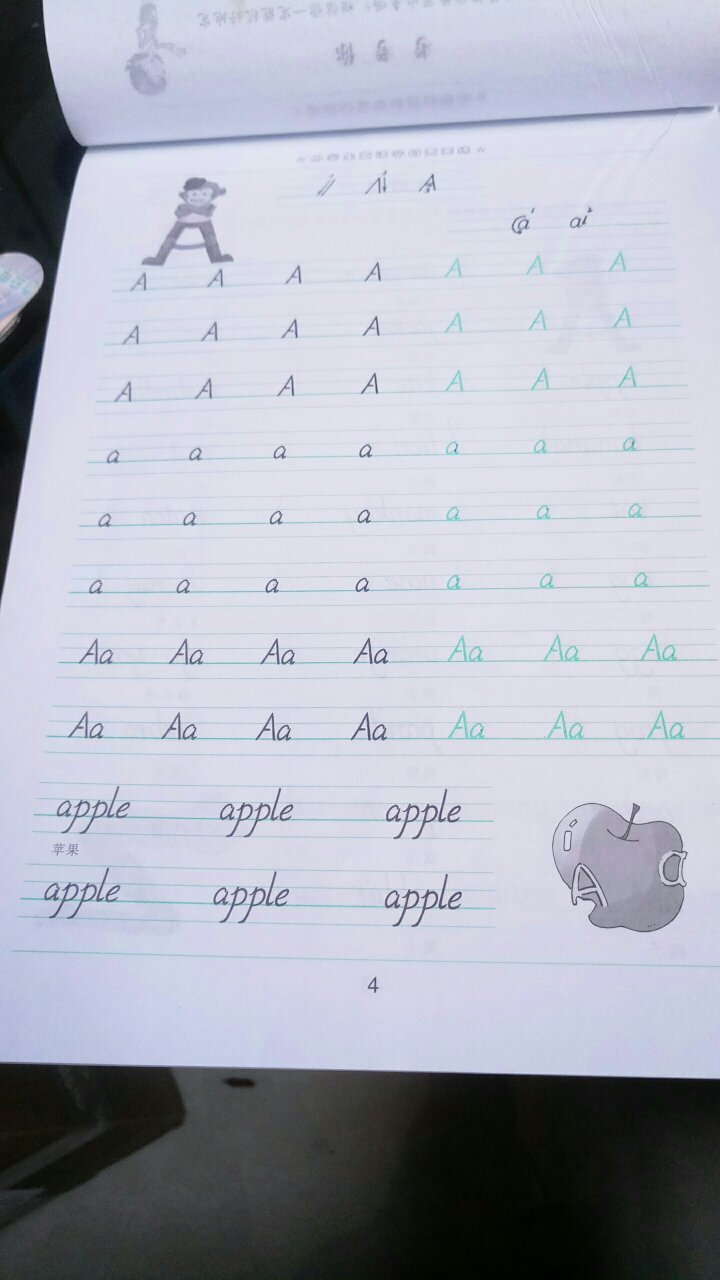 考考你
A
A A A A A A A
A A A A A A A
A A A A A A A
a a a a a a a
a a a a a a a
a a a a a a a
Aa Aa Aa Aa Aa Aa Aa
Aa Aa Aa Aa Aa Aa Aa
apple apple apple
苹果
apple apple apple
A a
4